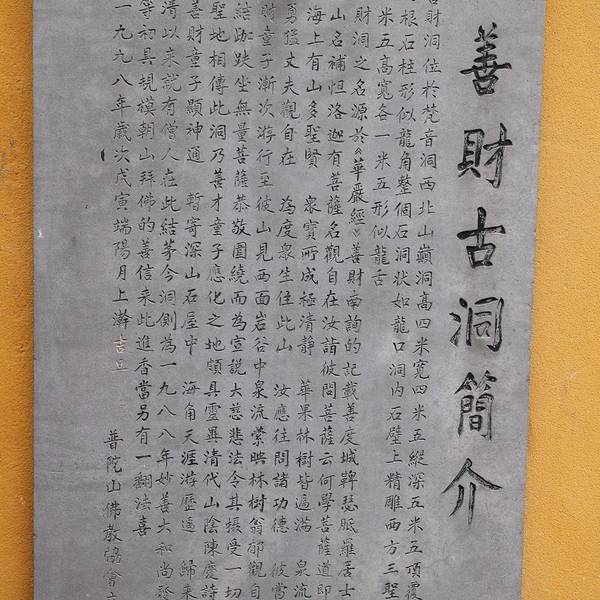 善財古洞簡介
善財洞位於梵音洞西北山巔洞高四米寬四米五縱深五米五頂覆
根石柱形似龍角整個石洞狀如龍口洞內石壁上精雕西方三聖
米五高寬各一米五形似龍舌
財洞之名源於《華嚴經》善財南詢的記載善度城鞞瑟胝羅居士
山名補怛洛迦有菩薩名觀自在汝詣彼問菩薩云何學菩薩道即
海上有山多聖賢 衆寶所成極清靜 華果林樹皆遍滿 泉流
勇猛丈夫觀自在 為度衆生住此山 汝應往問諸功德 彼當
財童子漸次游行至彼山見西面岩谷中泉流縈映林樹蓊郁觀自
結跏趺坐無量菩薩恭敬圍繞而為宣說大慈悲法令其攝受一切
聖地相傳此洞乃善才童子應化之地頗具靈異清代山陰陳慶詩
善財童子顯神通 暫寄深山石屋中 海角天涯游歷遍 歸來
清以來就有僧人在此結茅今洞側為一九八八年妙善大和尚發
等初具規模朝山拜佛的善信來此進香當另有一翻法喜
一九九八年歲次戊寅端陽月上澣吉旦
普陀山佛教協會